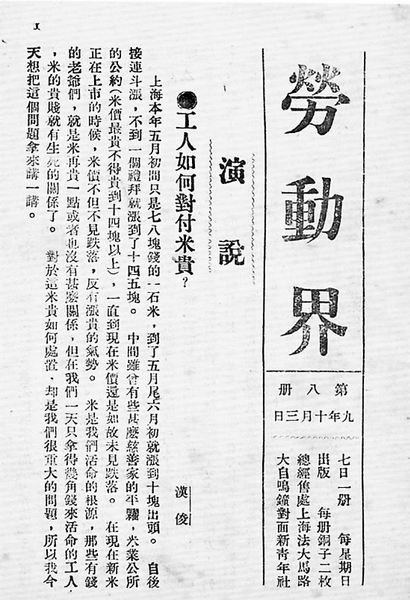 勞動界
第八册
九年十月三日
七日一册 每星期日
出版 每册銅子二枚
總經售處上海法大馬路
大自鳴鐘對面新青年社
演說
●工人如何對付米貴?
漢俊
上海本年五月初間只是七八塊錢的一石米,到了五月尾六月初就漲到十塊出頭。 自後
接連斗漲,不到一個禮拜就漲到了十四五塊。 中間雖曾有些甚麼慈善家的平糶,米業公所
的公約(米價最貴不得貴到十四塊以上),一直到現在米價還是如故未見跌落。 在現在新米
正在上市的時候,米價不但不見跌落,反有漲貴的氣勢。 米是我們活命的根源,那些有錢
的老爺們,就是米再貴一點或者也沒有甚麼關係,但在我們一天只拿得幾角錢來活命的工人
,米的貴賤就有生死的關係了。 對於這米貴如何處置,却是我們很重大的問題,所以我今
天想把這個問題拿來講一講。
I